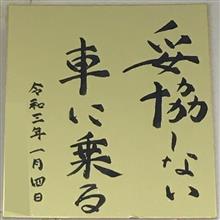 妥協しない
車に乗る
令和三年一月四日